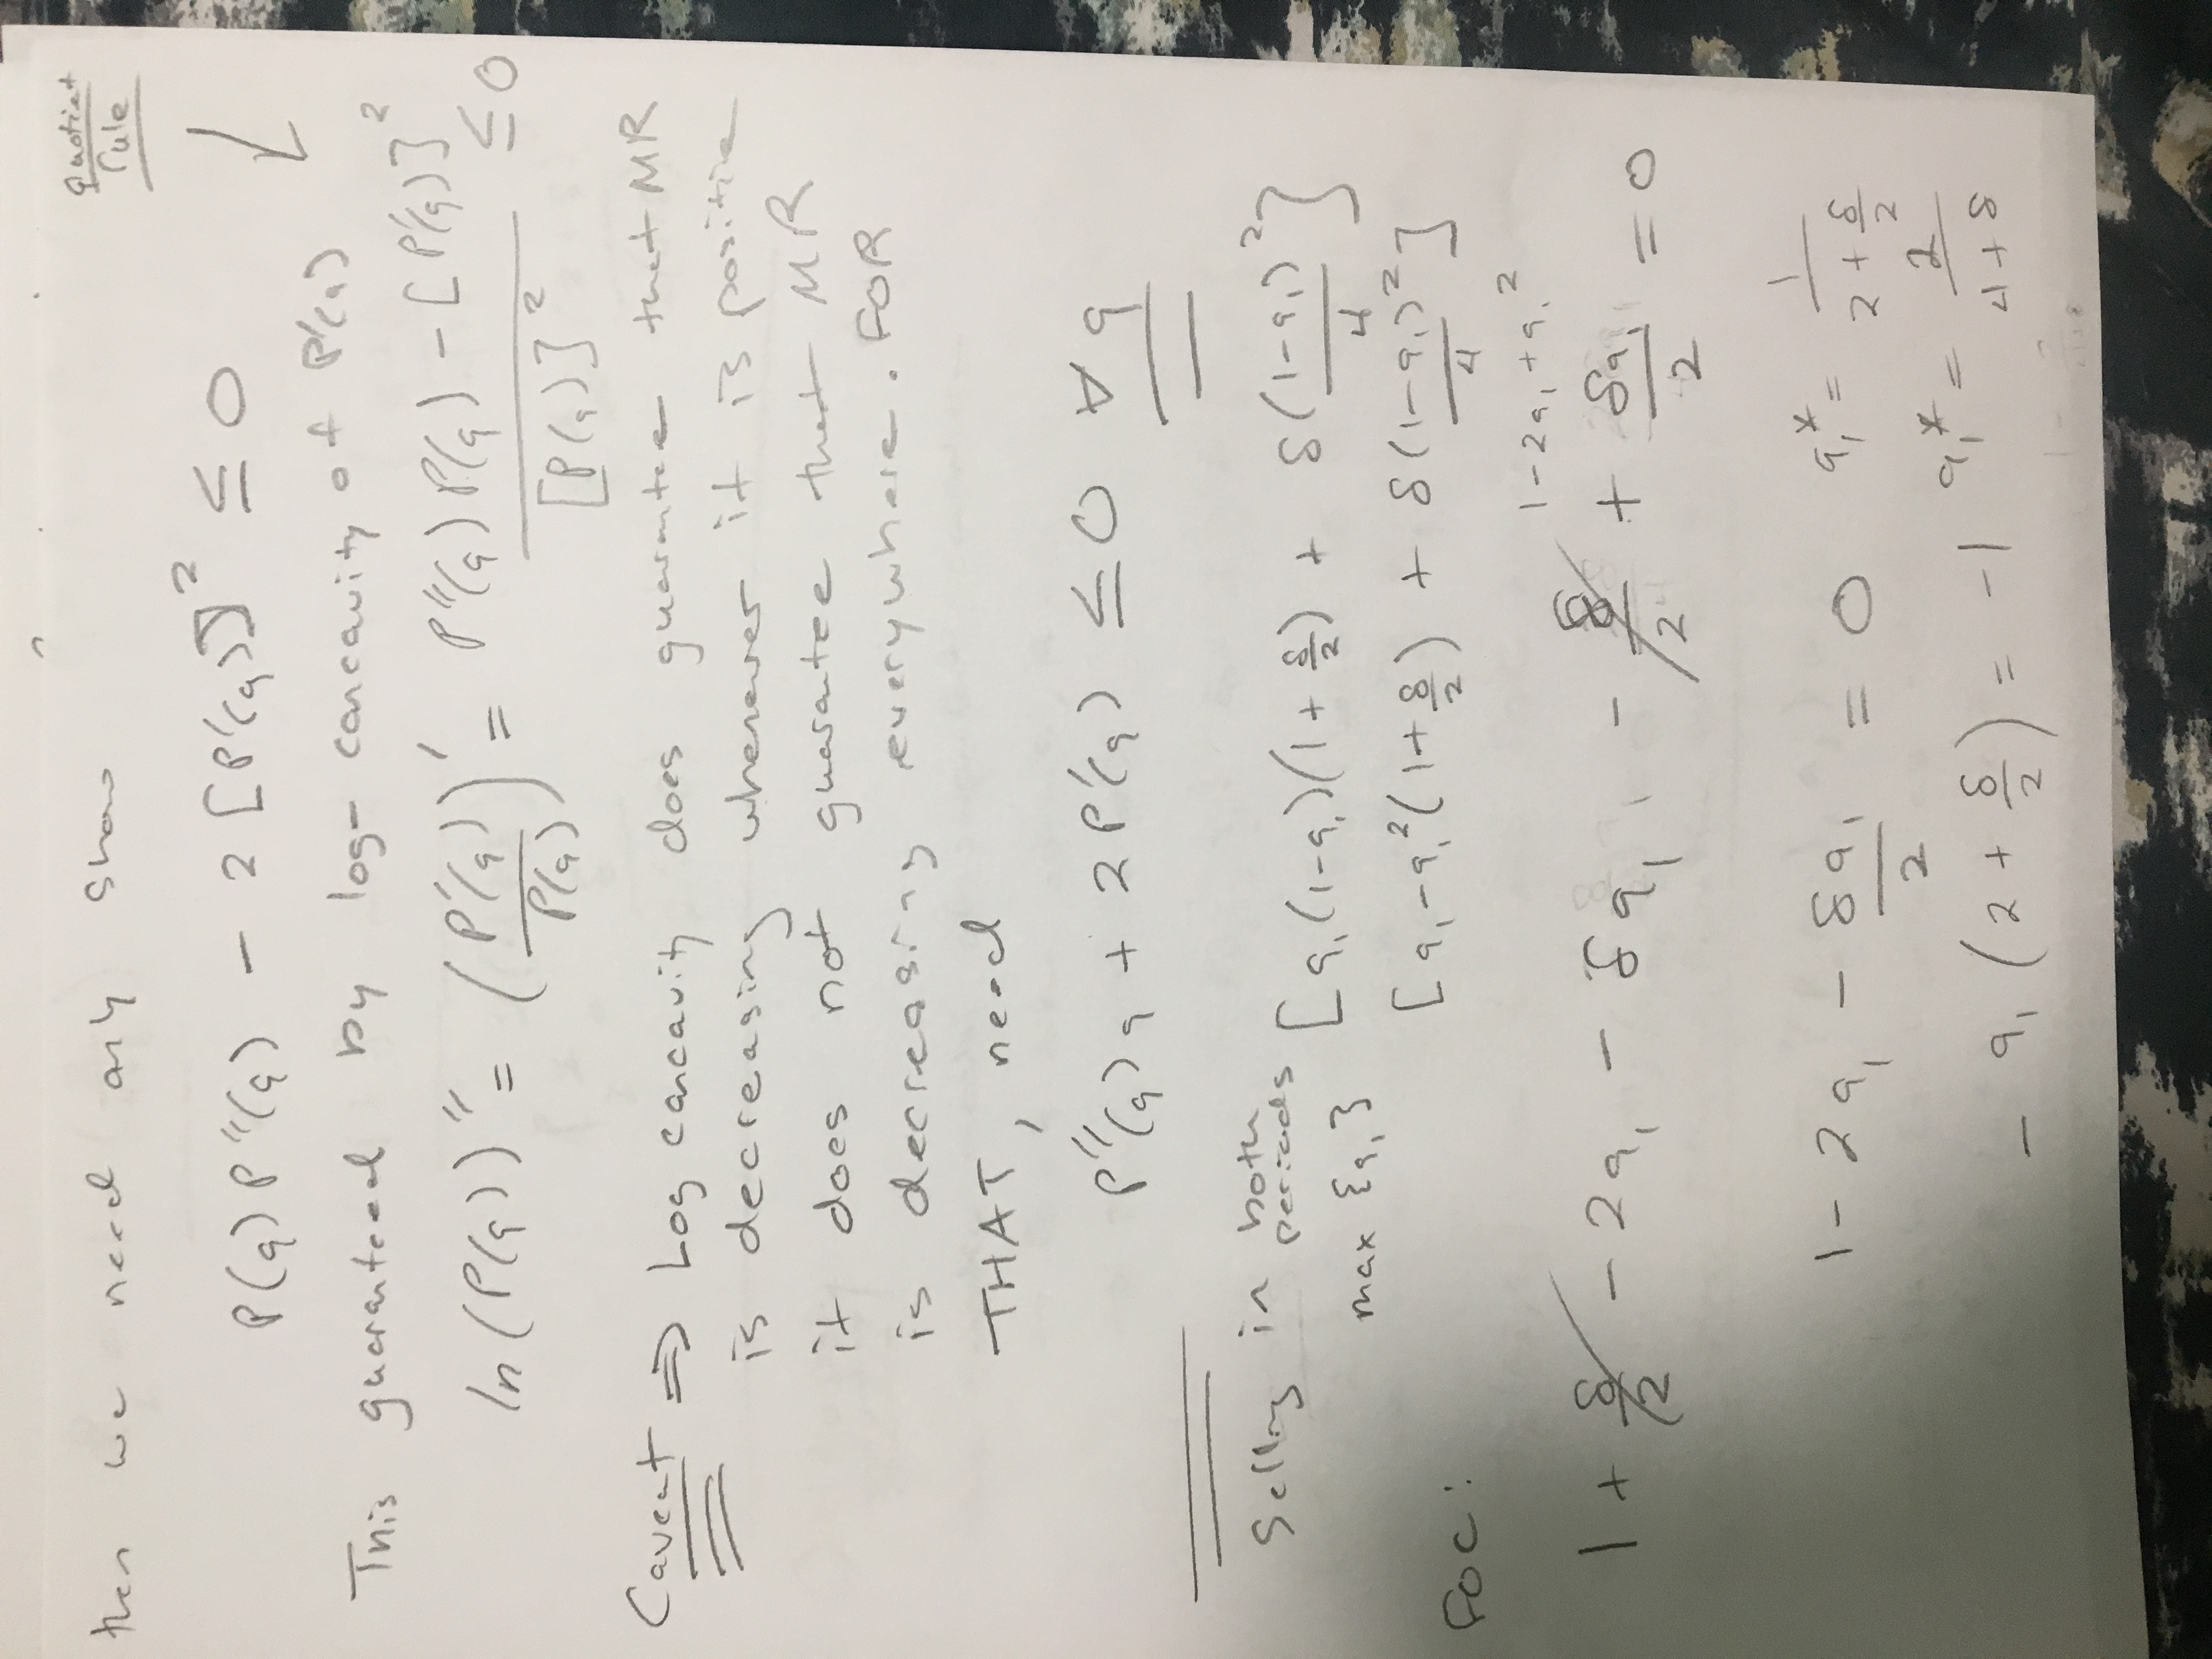 then we need only show
quotiet
rule
P(q) P''(q) - 2 [P'(q)]² ≤ 0
This guaranteed by log-concavity of P'(q)
ln(P(q))'' = (P'(q)/P(q))' = P''(q) P(q) - [P'(q)]² / [P(q)]² ≤ 0
Caveat ⇒ Log concavity does guarantee that MR
is decreasing whenever it is positive
it does not guarantee that MR
is decreasing everywhere. FOR
THAT, need
P''(q) q + 2P'(q) ≤ 0 ∀ q
Selling in both
periods
max {q₁} [q₁(1-q₁)(1+δ/2) + δ(1-q₁)²/4]
[q₁-q₁²(1+δ/2) + δ(1-q₁)²/4]
FOC:
1-2q₁+q₁²
1 + δ/2 - 2q₁ - δq₁ - δ/2 + δq₁/2 = 0
1 - 2q₁ - δq₁/2 = 0 q₁* = 1/(2+δ/2)
- q₁ (2 + δ/2) = -1 q₁* = 2/(4+δ)